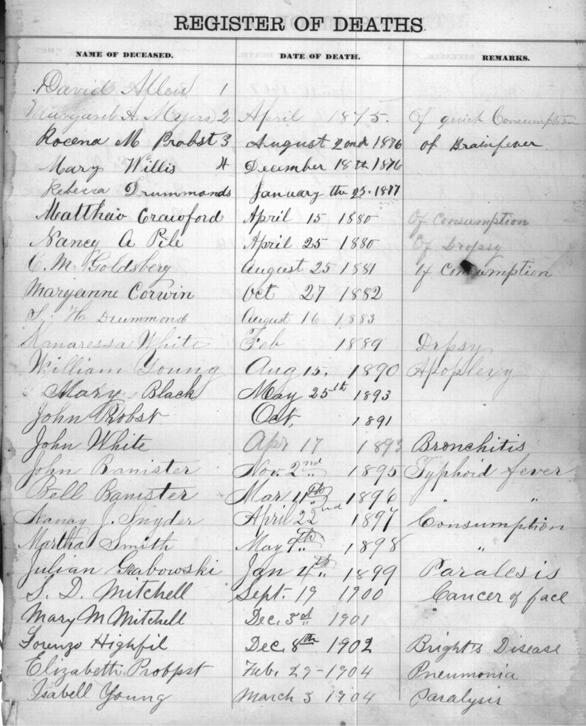 REGISTER OF DEATHS.
NAME OF DECEASED. DATE OF DEATH. REMARKS.
David Allen 1
Margaret A. Myers 2 April 1875. Of quick Consumption
Rocena M Probst 3 August 2nd 1876 of Brainfever
Mary Willis 4 December 18th 1876
Rebecca Drummonds January the 25-1877
Matthew Crawford April 15 1880 Of Consumption
Nancy A Pile April 25 1880 Of Dropsy
C. M. Goldsberg August 25 1881 of Consumption
Maryanne Corwin Oct 27 1882
S. H. Drummond August 16 1883
White Feb 1889 Drpsy
William Young Aug 15. 1890 Apoplexy
Mary Black May 25th 1893
John Probst Oct. 1891
John White Apr 17 1893 Bronchitis
John Banister Nov. 2nd 1895 Typhoid fever
Bell Banister Mar 11th 1896 " "
Nancy J. Snyder April 22nd 1897 Consumption
Martha Smith May 9th 1898 "
Julian Grabowski Jan 4th 1899 Parales is
S. D. Mitchell Sept. 19 1900 Cancer of face
Mary M Mitchell Dec. 3rd 1901
Lorenzo Highfil Dec. 8th 1902 Bright's Disease
Elizabeth Probpst Feb. 29-1904 Pneumonia
Isabell Young March 3 1904 Paralysis